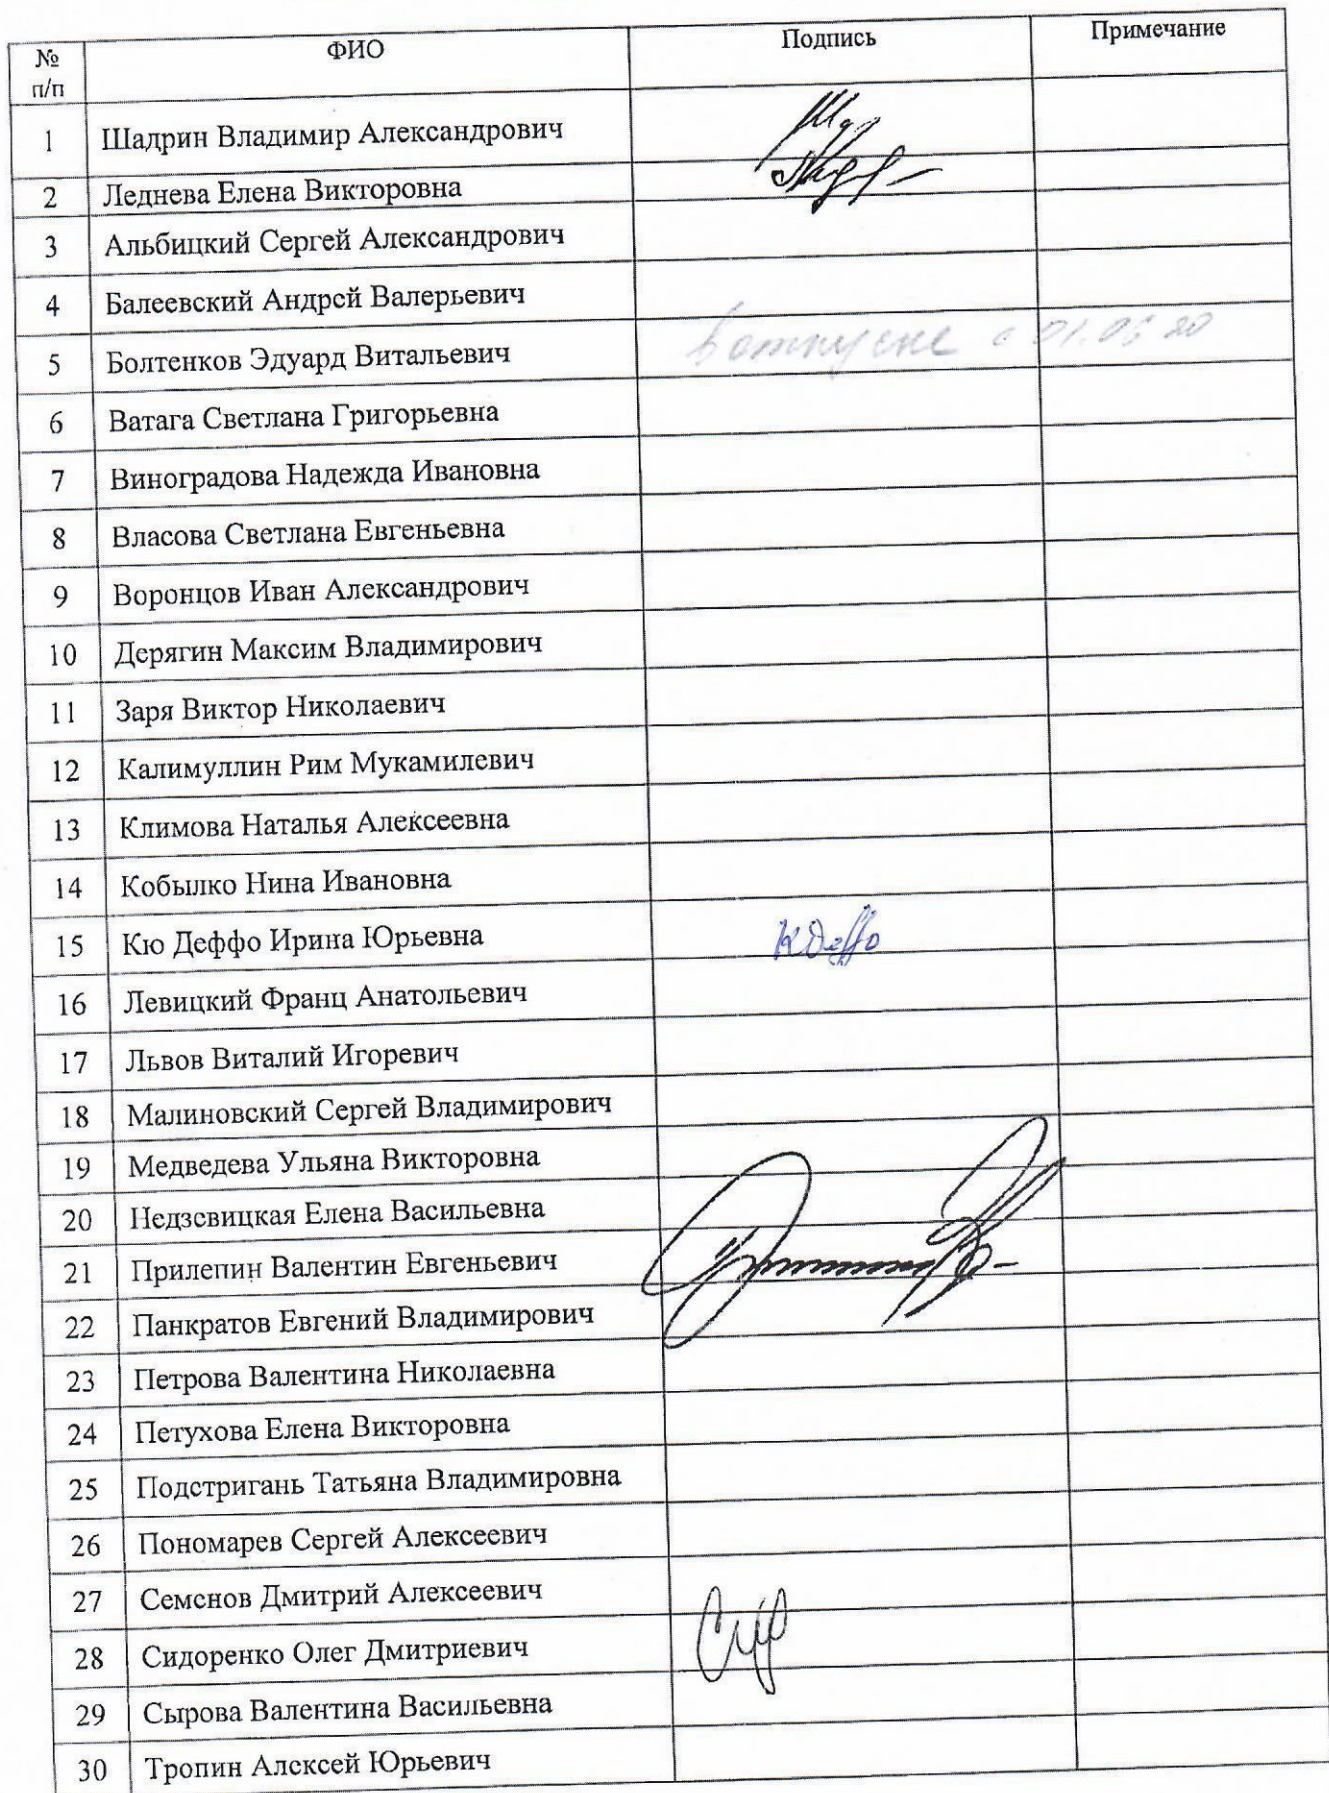 № п/п ФИО Подпись Примечание
1 Шадрин Владимир Александрович
2 Леднева Елена Викторовна
3 Альбицкий Сергей Александрович
4 Балеевский Андрей Валерьевич
5 Болтенков Эдуард Витальевич в отпуске с 01.06.20
6 Ватага Светлана Григорьевна
7 Виноградова Надежда Ивановна
8 Власова Светлана Евгеньевна
9 Воронцов Иван Александрович
10 Дерягин Максим Владимирович
11 Заря Виктор Николаевич
12 Калимуллин Рим Мукамилевич
13 Климова Наталья Алексеевна
14 Кобылко Нина Ивановна
15 Кю Деффо Ирина Юрьевна KDeffo
16 Левицкий Франц Анатольевич
17 Львов Виталий Игоревич
18 Малиновский Сергей Владимирович
19 Медведева Ульяна Викторовна
20 Недзевицкая Елена Васильевна
21 Прилепин Валентин Евгеньевич
22 Панкратов Евгений Владимирович
23 Петрова Валентина Николаевна
24 Петухова Елена Викторовна
25 Подстригань Татьяна Владимировна
26 Пономарев Сергей Алексеевич
27 Семенов Дмитрий Алексеевич
28 Сидоренко Олег Дмитриевич
29 Сырова Валентина Васильевна
30 Тропин Алексей Юрьевич